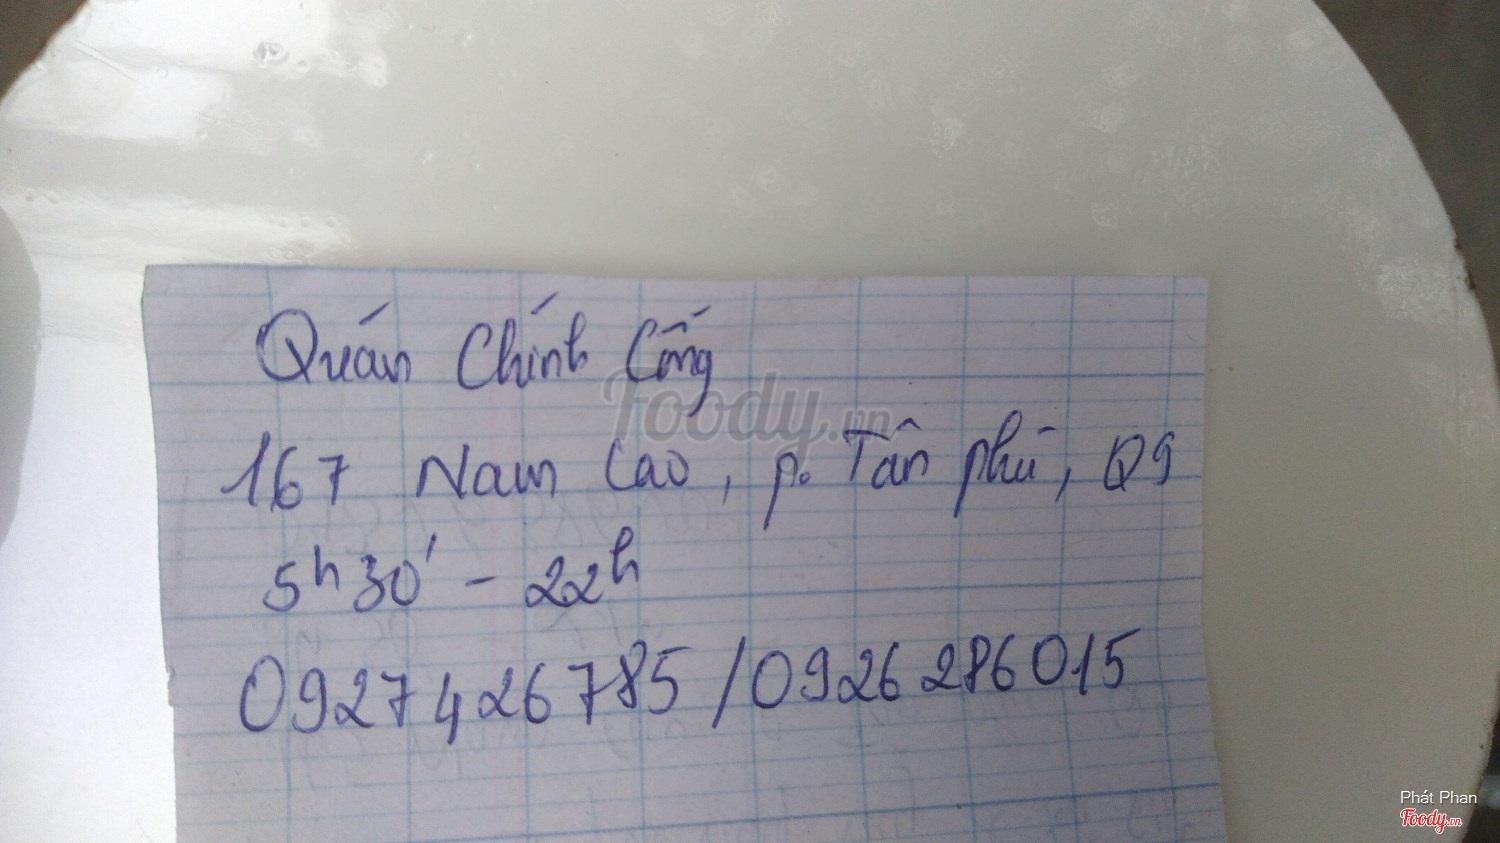 Quán Chính Cống
167 Nam Cao, p. Tân phú, Q9
5h30' - 22h
0927426785 / 0926286015
Foody.vn
Phát Phan
Foody.vn